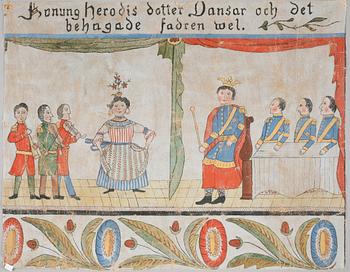 Konung Herodis dotter Dansar och det
behagade fadren wel.